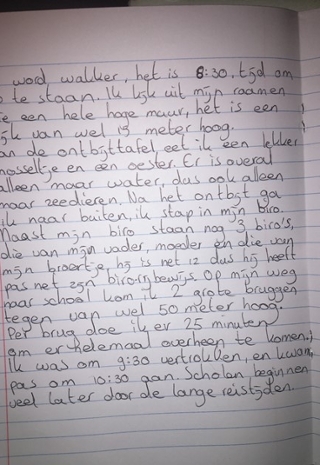 word wakker, het is 8:30, tijd om
te staan. Ik kijk uit mijn raam en
een hele hoge muur, het is een
van wel 15 meter hoog.
an de ontbijttafel eet ik een lekker
mosseltje en een oester. Er is overal
alleen maar water, dus ook alleen
maar zeedieren. Na het ontbijt ga
ik naar buiten, ik stap in mijn biro.
Naast mijn biro staan nog 3 biro's,
die van mijn vader, moeder en die van
mijn broertje, hij is net 12 dus hij heeft
pas net zijn biro-rijbewijs. Op mijn weg
naar school kom ik 2 grote bruggen
tegen van wel 50 meter hoog.
Per brug doe ik er 25 minuten
om er helemaal overheen te komen,
ik was om 9:30 vertrokken, en kwam
pas om 10:30 aan. Scholen beginnen
veel later door de lange reistijden.